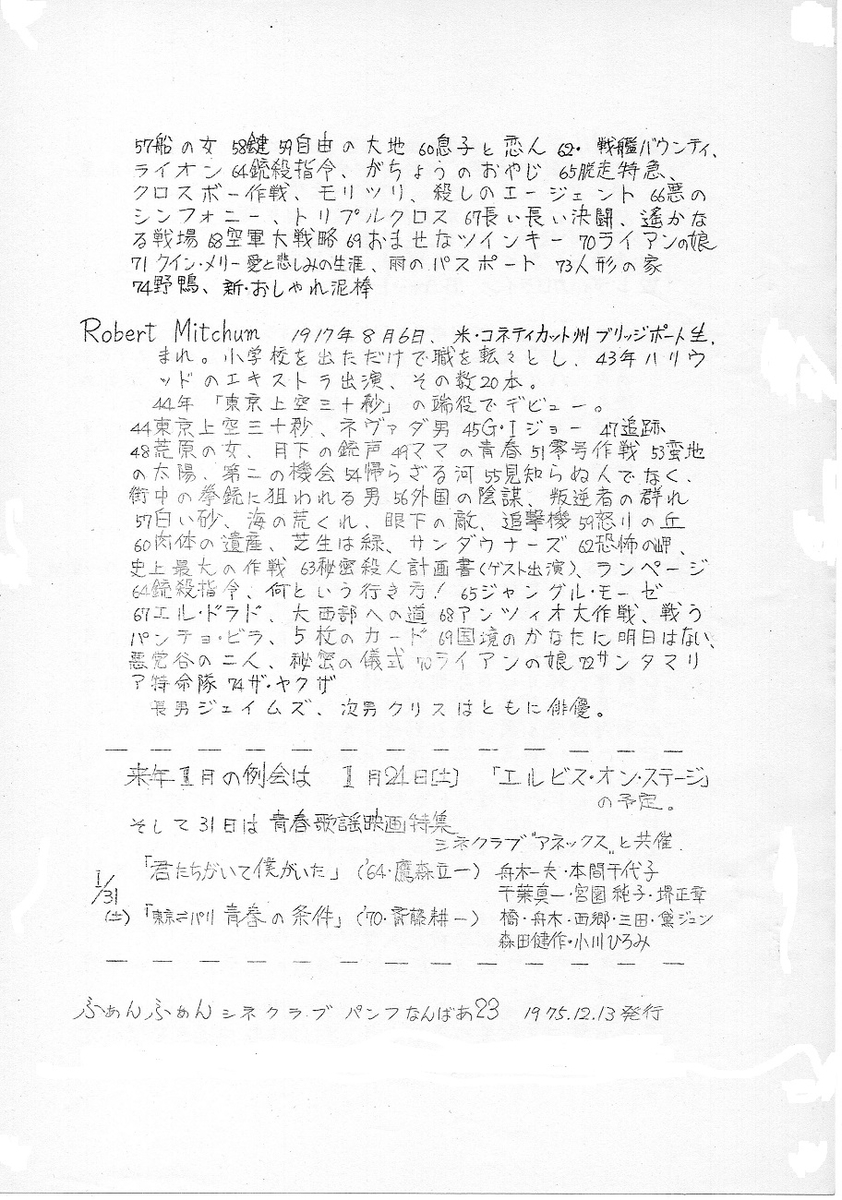 57船の女 58鍵 59自由の大地 60息子と恋人 62・戦艦バウンティ、
ライオン 64銃殺指令、がちょうのおやじ 65脱走特急、
クロスボー作戦、モリツリ、殺しのエージェント 66悪の
シンフォニー、トリプルクロス 67長い長い決闘、遙かな
る戦場 68空軍大戦略 69おませなツインキー 70ライアンの娘
71 クイン・メリー愛と悲しみの生涯、雨のパスポート 73人形の家
74野鴨、新・おしゃれ泥棒
Robert Mitchum 1917年8月6日、米・コネティカット州ブリッジポート生
まれ。小学校を出ただけで職を転々とし、43年ハリウ
ッドのエキストラ出演、その数20本。
44年「東京上空三十秒」の端役でデビュー。
44東京上空三十秒、ネヴァダ男 45G・Iジョー 47追跡
48荒原の女、月下の銃声 49ママの青春 51零号作戦 53蛮地
の太陽、第二の機会 54帰らざる河 55見知らぬ人でなく、
街中の拳銃に狙われる男 56外国の陰謀、叛逆者の群れ
57白い砂、海の荒くれ、眼下の敵、追撃機 59怒りの丘
60肉体の遺産、芝生は緑、サンダウナーズ 62恐怖の岬、
史上最大の作戦 63秘密殺人計画書(ゲスト出演)、ランページ
64銃殺指令、何という行き方! 65ジャングル・モーゼ
67エル・ドラド、大西部への道 68アンツィオ大作戦、戦う
パンチョ・ビラ、5枚のカード 69国境のかなたに明日はない、
悪党谷の二人、秘密の儀式 70ライアンの娘 72サンタマリ
ア特命隊 74ザ・ヤクザ
長男ジェイムズ、次男クリスはともに俳優。
来年1月の例会は 1月24日[土] 「エルビス・オン・ステージ」
の予定。
そして31日は青春歌謡映画特集
シネクラブ“アネックス”と共催.
「君たちがいて僕がいた」('64・鷹森立一) 舟木一夫・本間千代子
1/31
千葉真一・宮園純子・堺正章
(土)「東京⇄パリ 青春の条件」('70・斎藤耕一) 橋・舟木・西郷・三田・黛ジュン
森田健作・小川ひろみ
ふぁんふぁんシネクラブ パンフなんばあ23 1975.12.13発行